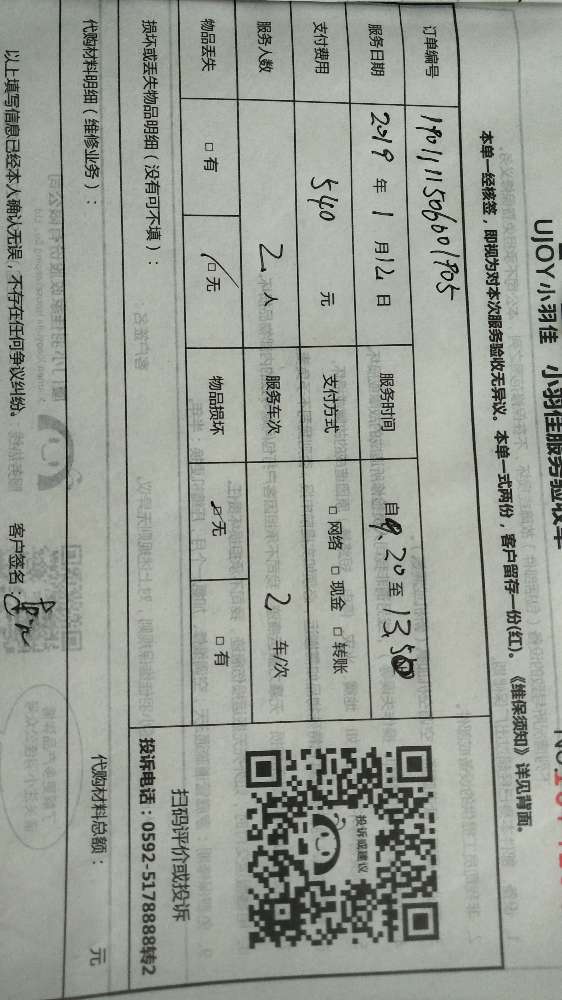 UJOY小羽佳 小羽佳服务验收单
本单一经核签，即视为对本次服务验收无异议。本单一式两份，客户留存一份(红)。《维保须知》详见背面。
订单编号 19011115066001705
服务日期 2019 年 1 月 12 日 服务时间 自 9.20 至 13.50
支付费用 540 元 支付方式 □ 网络 □ 现金 □ 转账
服务人数 2 人 服务车次 2 车/次
物品丢失 □ 有 □ 无 物品损坏 □ 无 □ 有
损坏或丢失物品明细（没有可不填）：
投诉或建议
扫码评价或投诉
投诉电话：0592-5178888转2
代购材料明细（维修业务）： 代购材料总额： 元
以上填写信息已经本人确认无误，不存在任何争议纠纷。 客户签名：